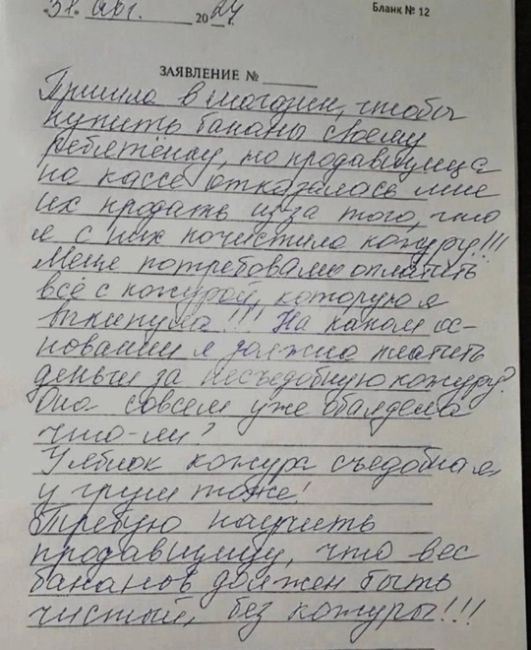 31. Авг. 2024
Бланк № 12
ЗАЯВЛЕНИЕ №
Пришла в магазин, чтобы
купить бананы своему
ребятёнку, но продавщица
на кассе отказалась мне
их продать из за того, что
я с них почистила кожуру!!!
Меня потребовали оплатить
всё с кожурой, которую я
выкинула!!! На каком ос-
новании я должна платить
деньги за несъедобную кожуру?
Она совсем уже обалдела
что-ли?
У яблок кожура съедобная,
у груш тоже!
Требую научить
продавщицу, что вес
бананов должен быть
чистый, без кожуры!!!